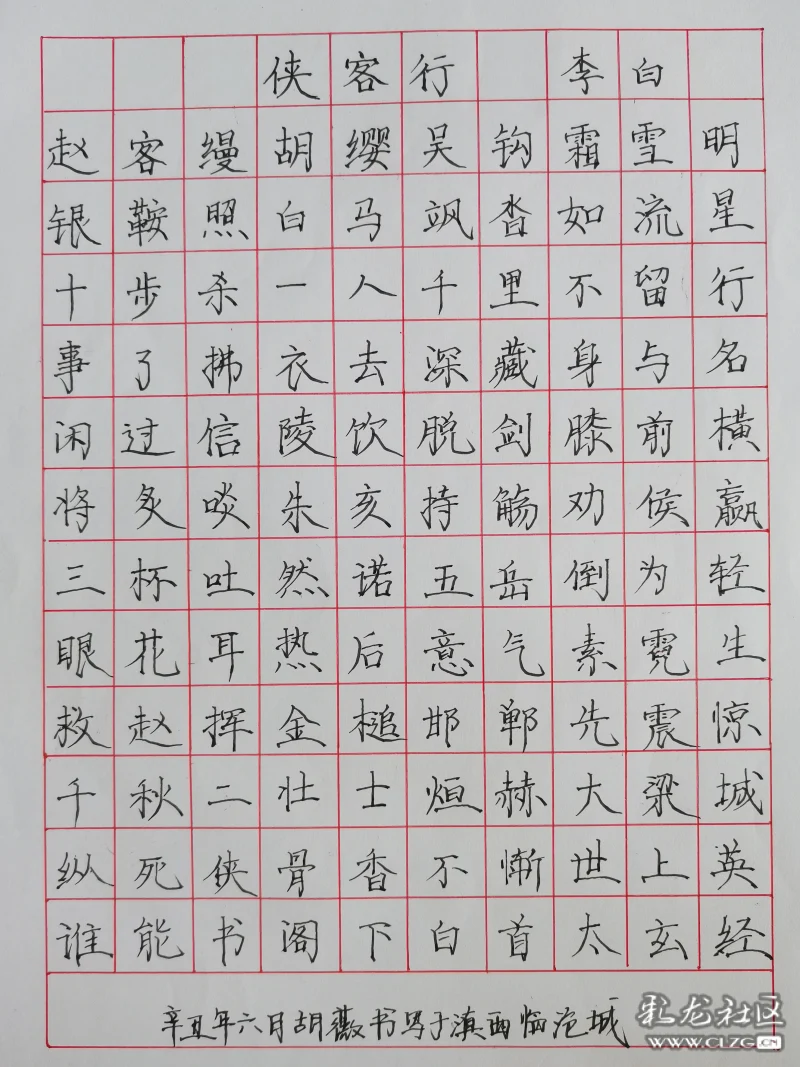 侠客行 李白
赵客缦胡缨吴钩霜雪明
银鞍照白马飒沓如流星
十步杀一人千里不留行
事了拂衣去深藏身与名
闲过信陵饮脱剑膝前横
将炙啖朱亥持觞劝侯嬴
三杯吐然诺五岳倒为轻
眼花耳热后意气素霓生
救赵挥金槌邯郸先震惊
千秋二壮士烜赫大梁城
纵死侠骨香不惭世上英
谁能书阁下白首太玄经
辛丑年六月胡薇书写于滇西临沧城
彩龙社区
WWW.CLZG.CN